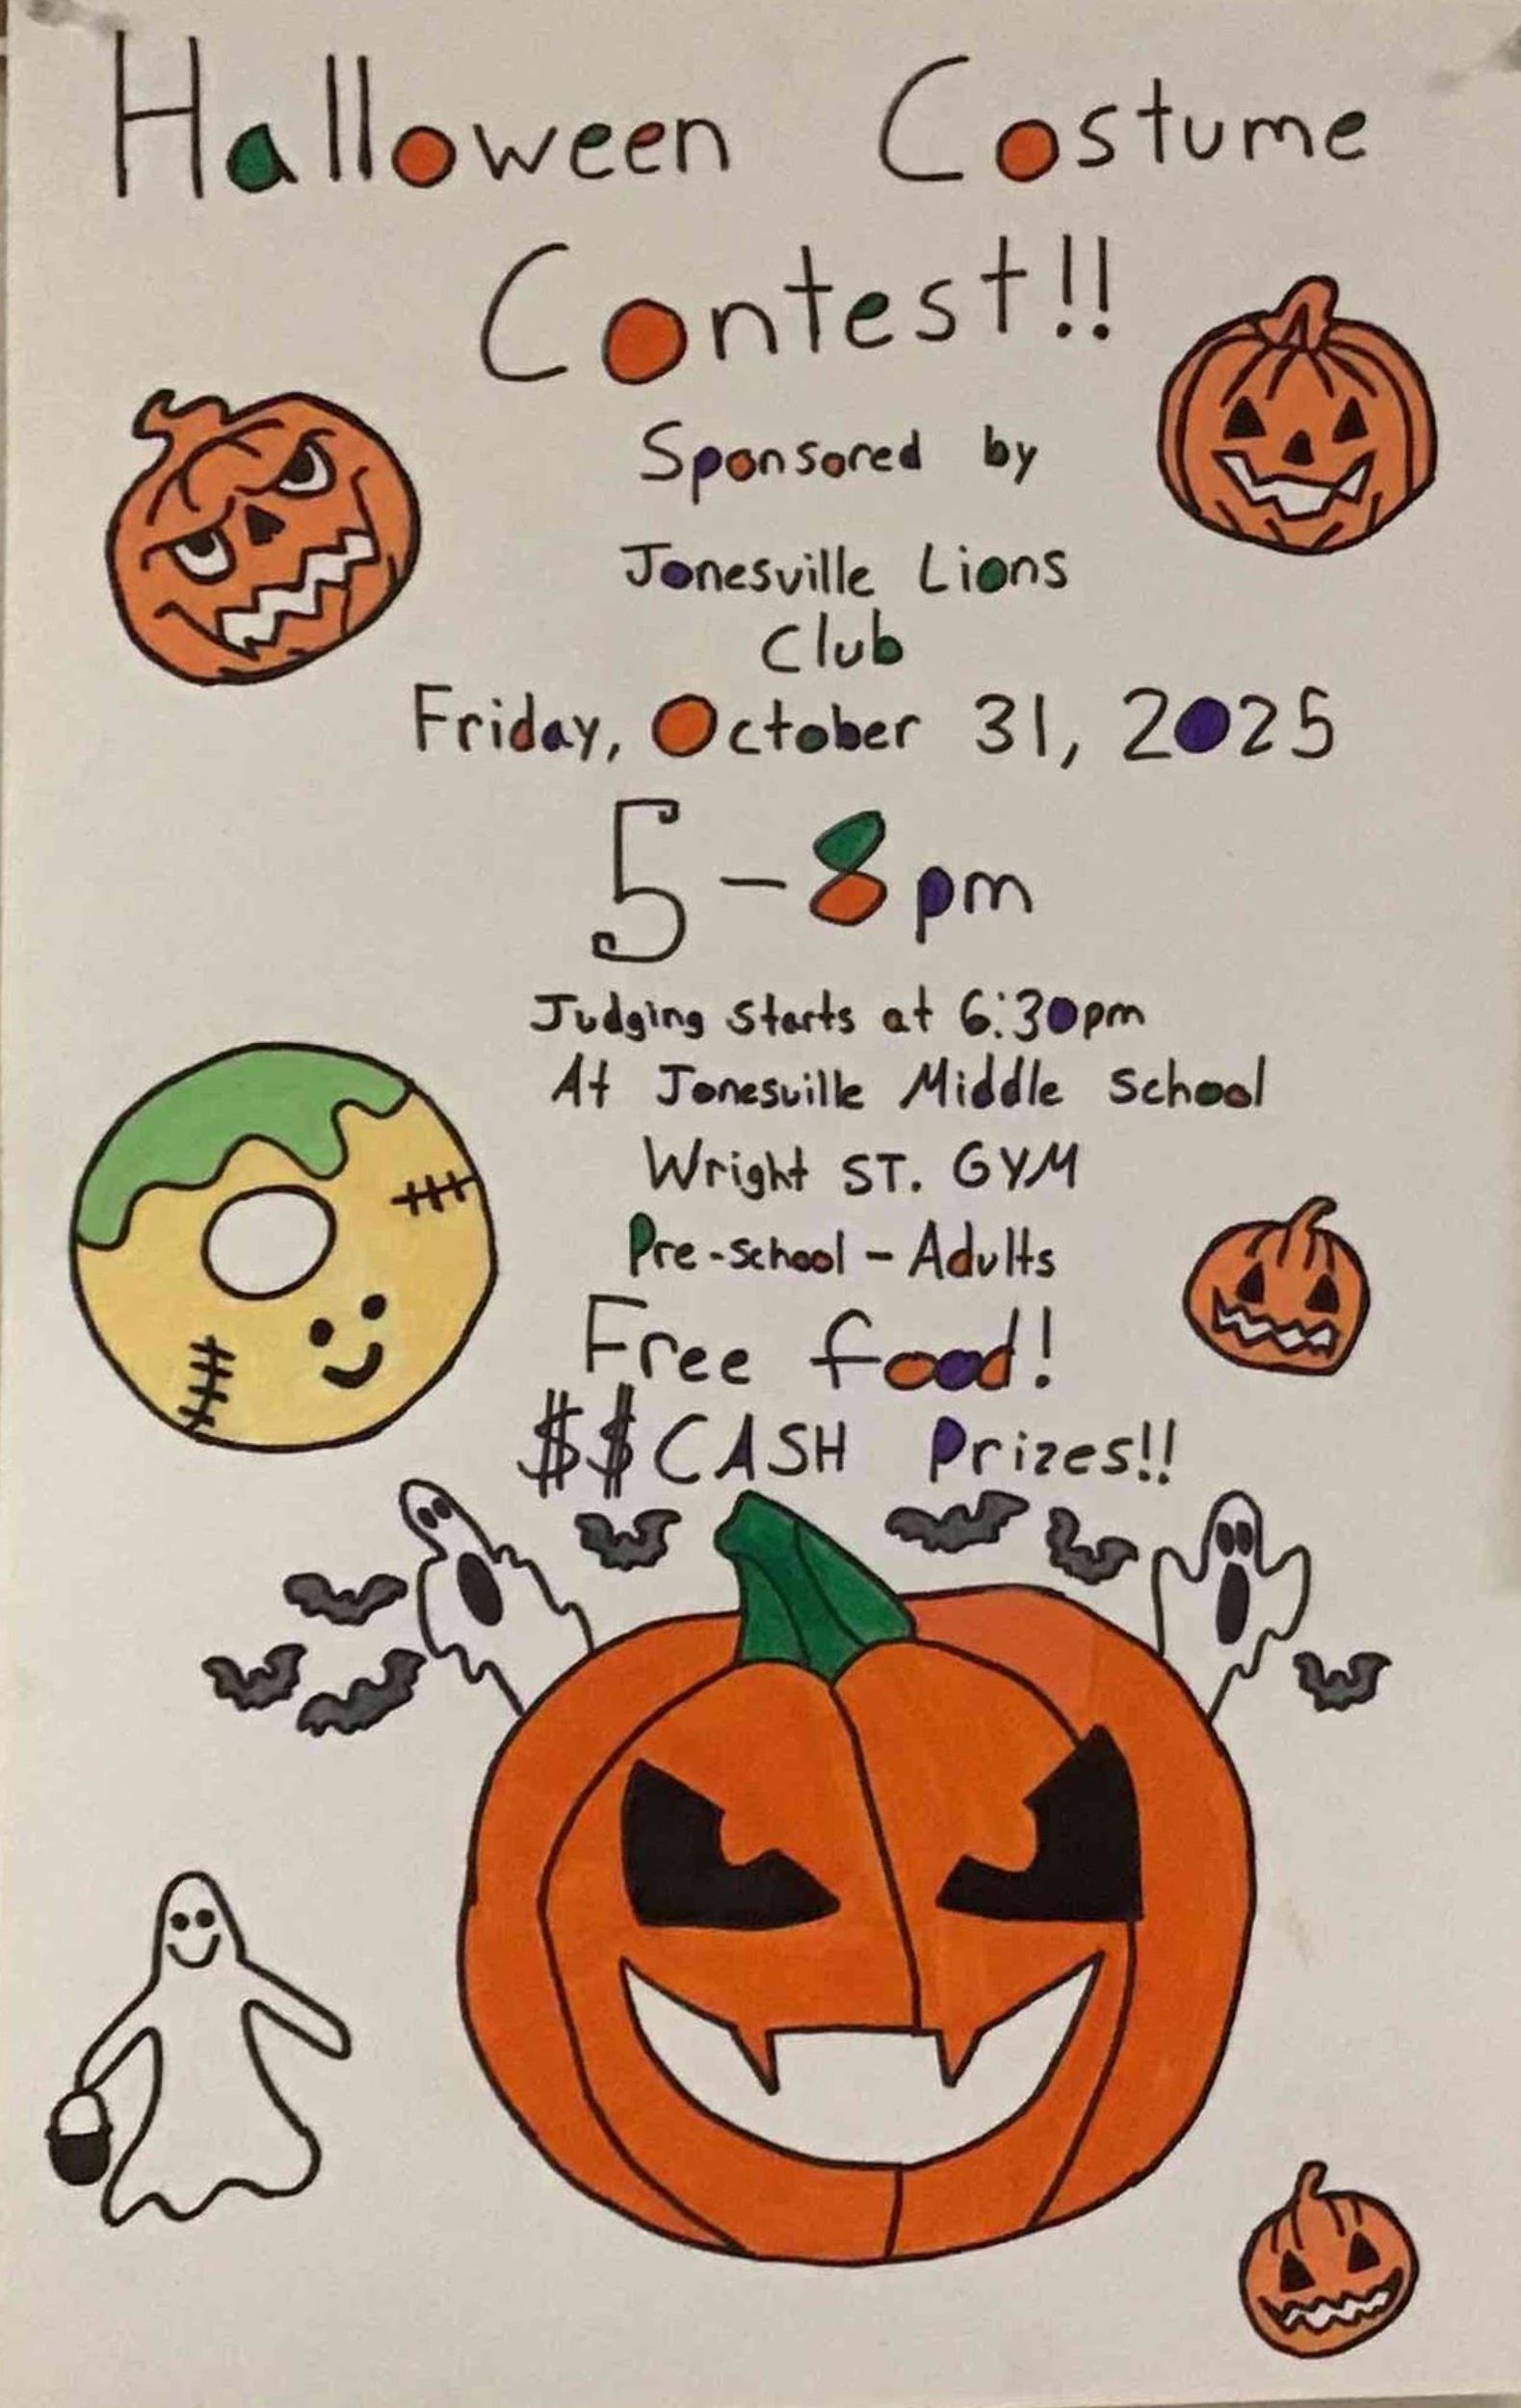 Halloween Costume
Contest!!
Sponsored by
Jonesville Lions
Club
Friday, October 31, 2025
5-8pm
Judging starts at 6:30pm
At Jonesville Middle School
Wright ST. GYM
Pre-school - Adults
Free food!
$$CASH Prizes!!